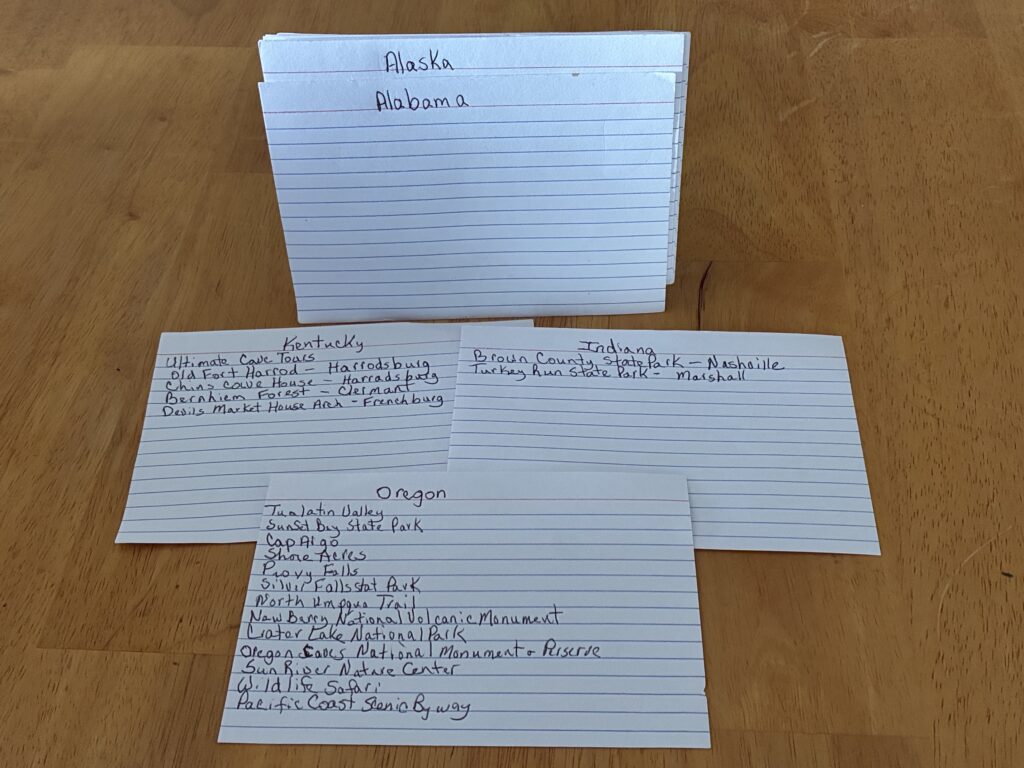 Alaska
Alabama
Kentucky
Ultimate Cave Tours
Old Fort Harrod - Harrodsburg
Chins Cove House - Harradsburg
Bernhiem Forest - Clermant
Devils Market House Arch - Frenchburg
Indiana
Brown County State Park - Nashville
Turkey Run State Park - Marshall
Oregon
Tualatin Valley
Sunset Bay State Park
Cap Argo
Shore Acres
Provy Falls
Silvir Falls stat Park
North Umpqua Trail
New Barry National Volcanic Monument
Crater Lake National Park
Oregon Caves National Monument & Perserve
Sun River Nature Center
Wildlife Safari
Pacific Coast Scenic By way